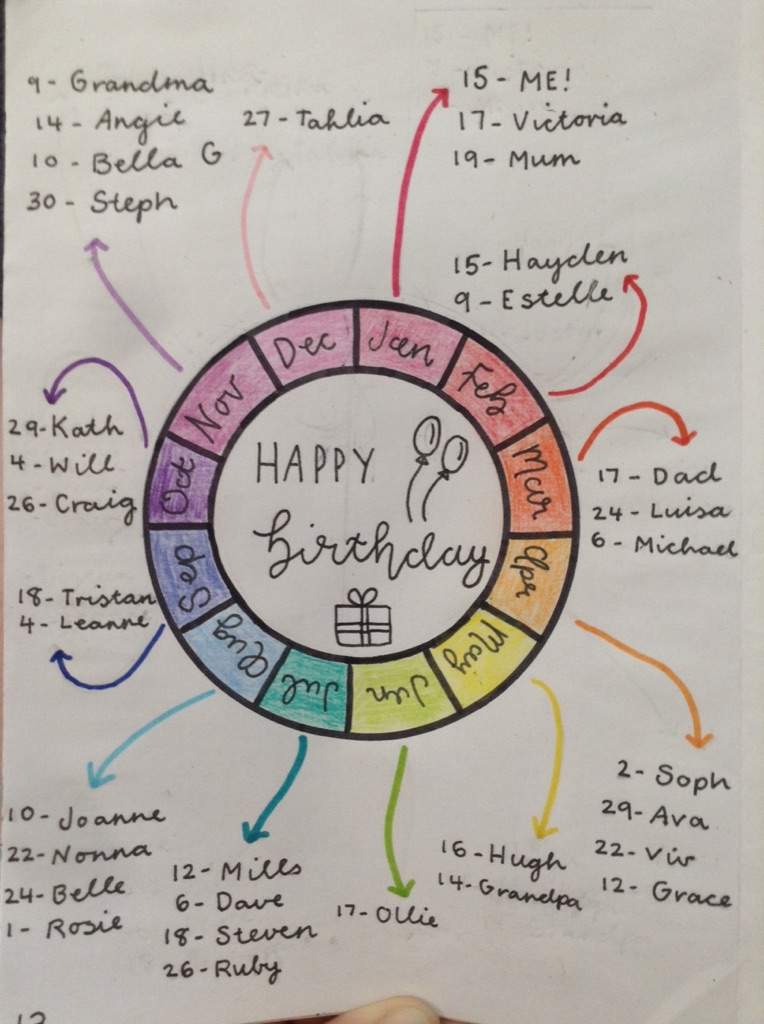 9 - Grandma
14 - Angie
10 - Bella G
30 - Steph
27 - Tahlia
15 - ME!
17 - Victoria
19 - Mum
15 - Hayden
9 - Estelle
17 - Dad
24 - Luisa
6 - Michael
2 - Soph
29 - Ava
22 - Viv
12 - Grace
16 - Hugh
14 - Grandpa
17 - Ollie
12 - Mills
6 - Dave
18 - Steven
26 - Ruby
10 - Joanne
22 - Nonna
24 - Belle
1 - Rosie
18 - Tristan
4 - Leanne
29 - Kath
4 - Will
26 - Craig
Jan
Feb
Mar
Apr
May
Jun
Jul
Aug
Sep
Oct
Nov
Dec
HAPPY
birthday